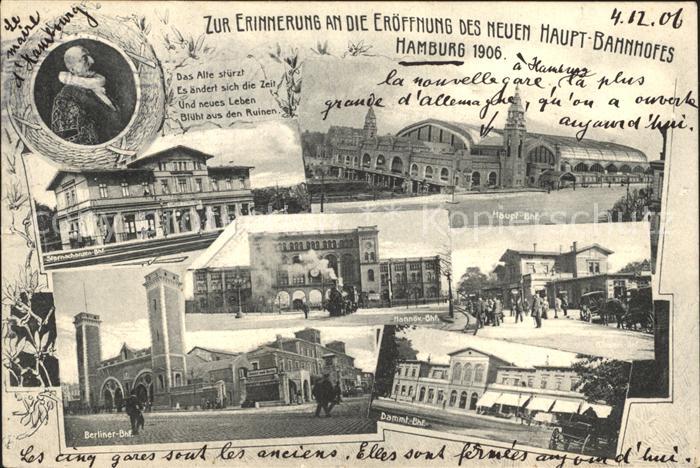 4.12.06
Le
maire
d'Hambourg
ZUR ERINNERUNG AN DIE ERÖFFNUNG DES NEUEN HAUPT-BAHNHOFES
HAMBURG 1906.
Das Alte stürzt
Es ändert sich die Zeit
Und neues Leben
Blüht aus den Ruinen.
à Hambourg
la nouvelle gare, la plus
grande d'Allemagne, qu'on a ouverte
aujourd'hui.
Haupt-Bhf.
Sternschanzen-Bhf.
Hannöv.-Bhf.
Berliner-Bhf.
Dammt.-Bhf.
Les cinq gares sont les anciens. Elles sont fermées aujourd'hui.